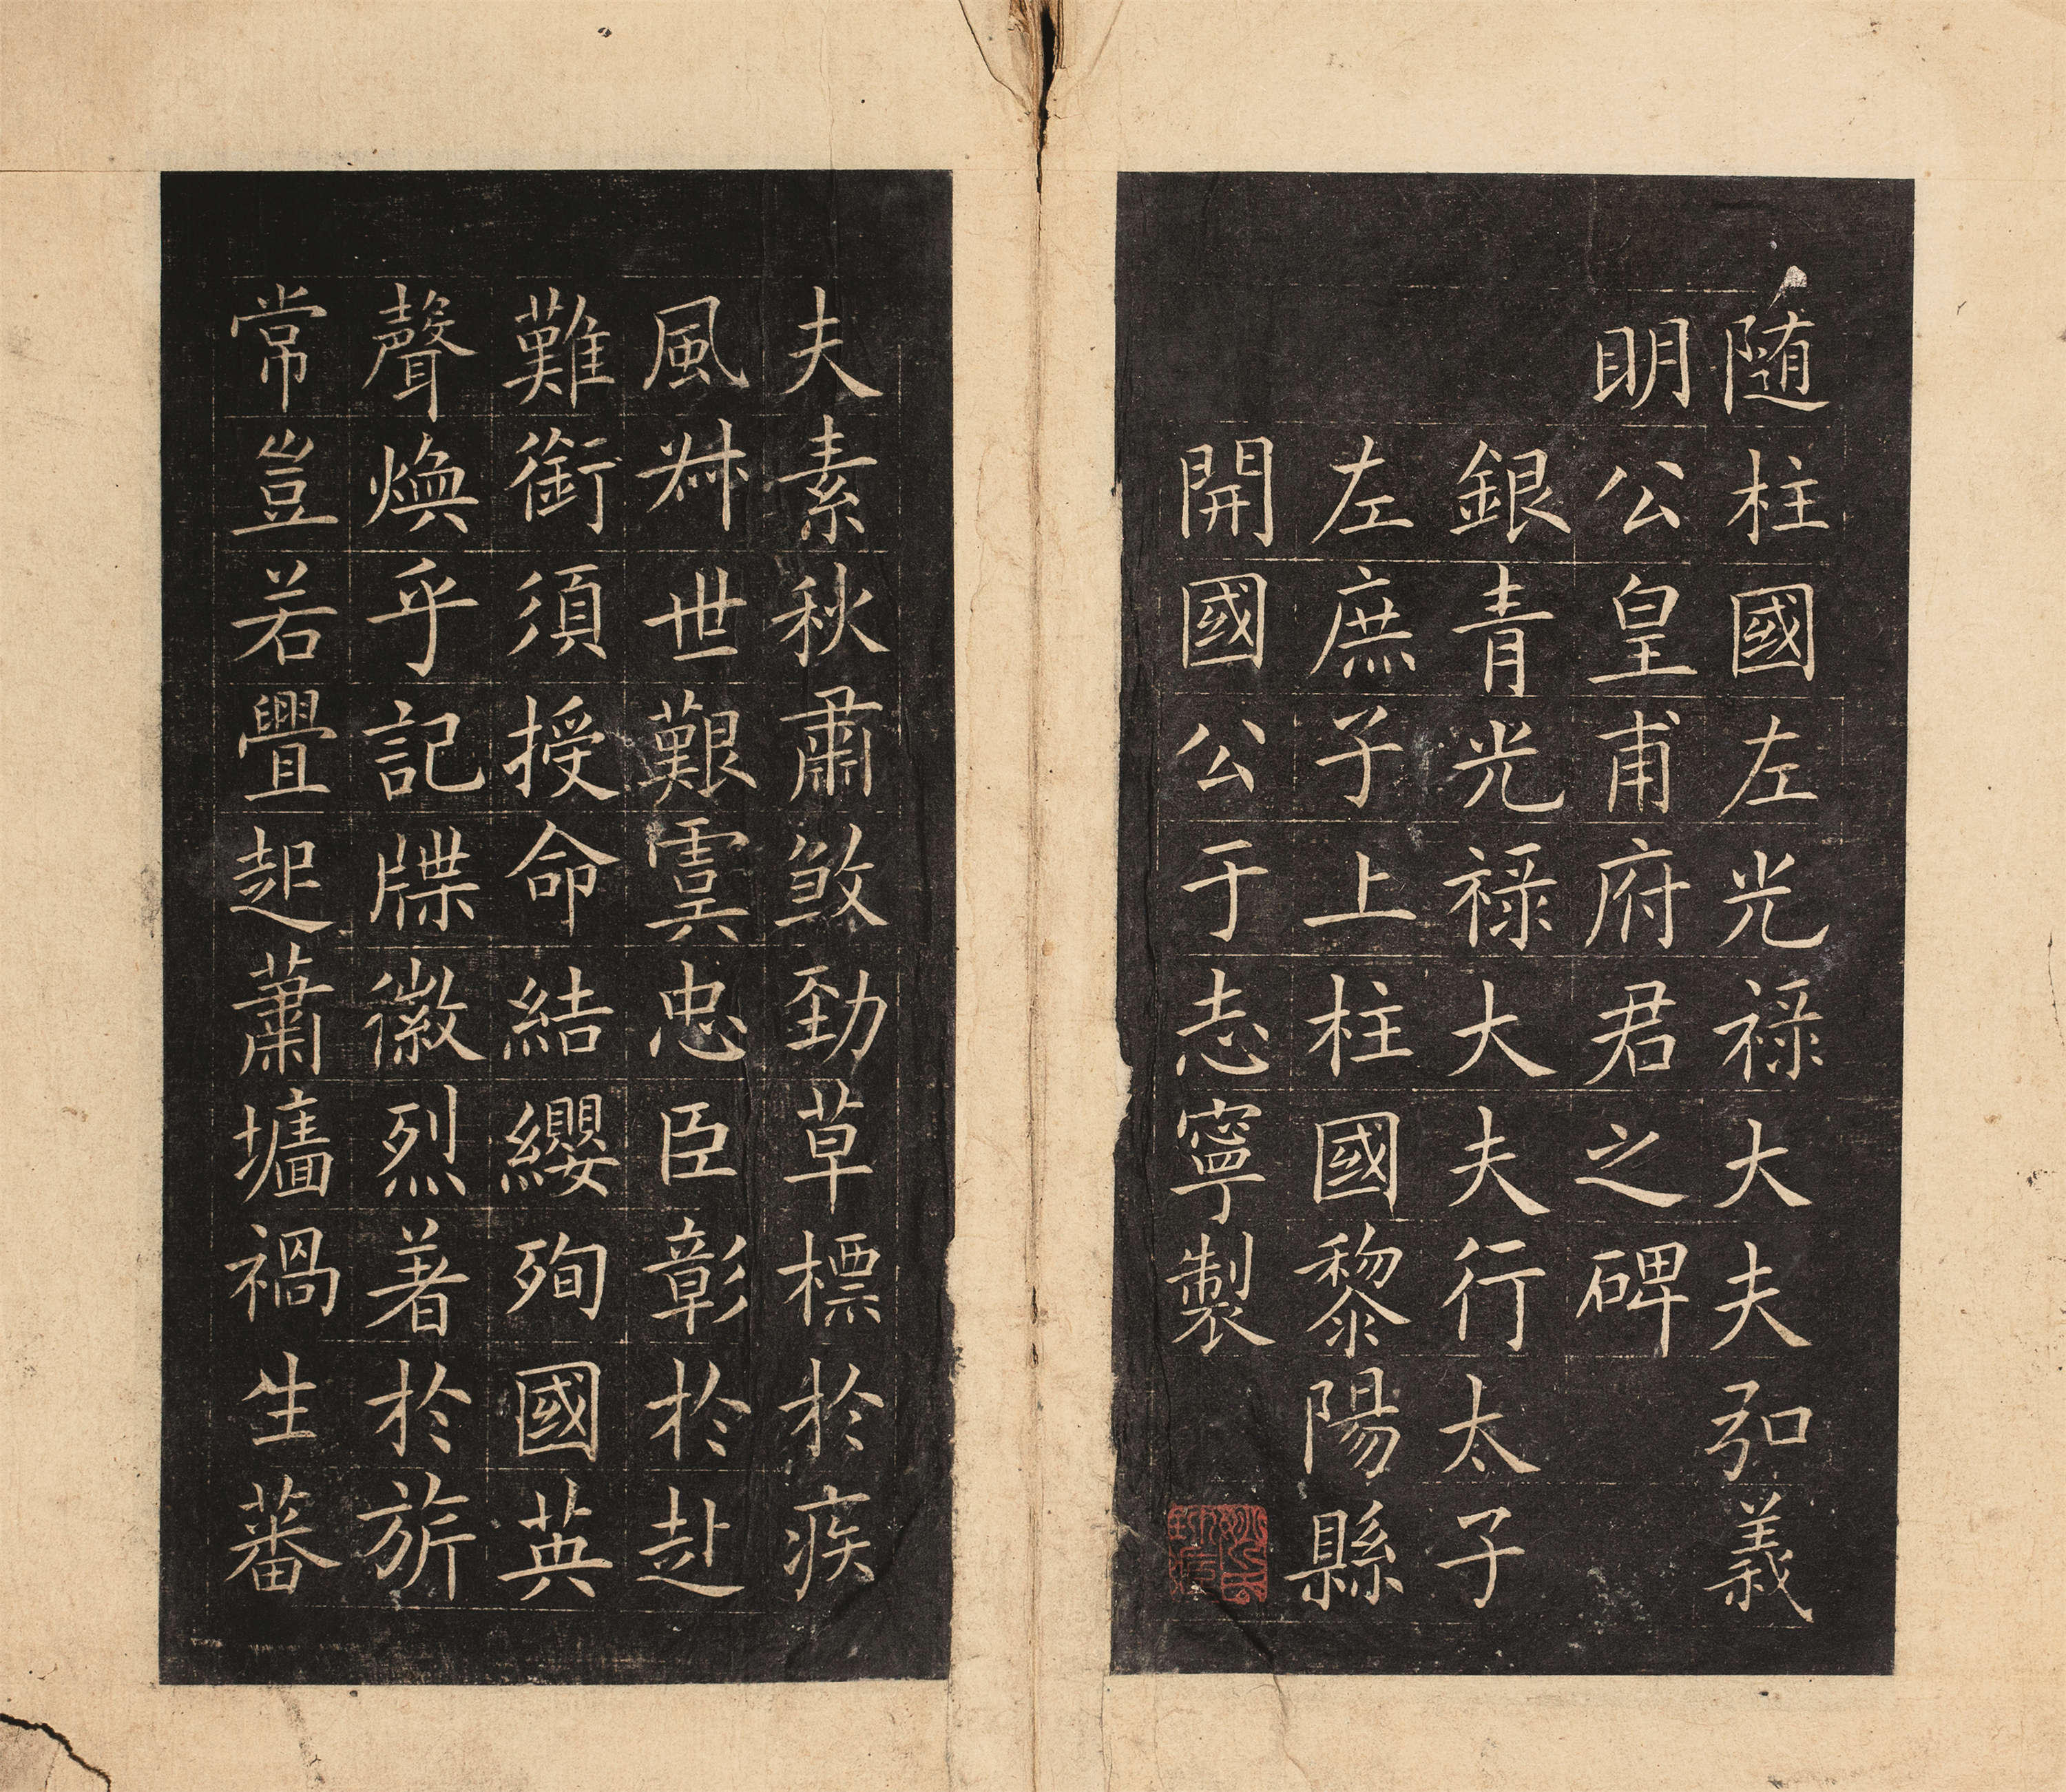 随柱國左光祿大夫弘義
明公皇甫府君之碑
銀青光祿大夫行太子
左庶子上柱國黎陽縣
開國公于志寧製
夫素秋肅煞勁草標於疾
風叔世艱虞忠臣彰於赴
難銜須授命結纓殉國英
聲煥乎記牒徽烈著於旂
常豈若舋起蕭墻禍生蕃